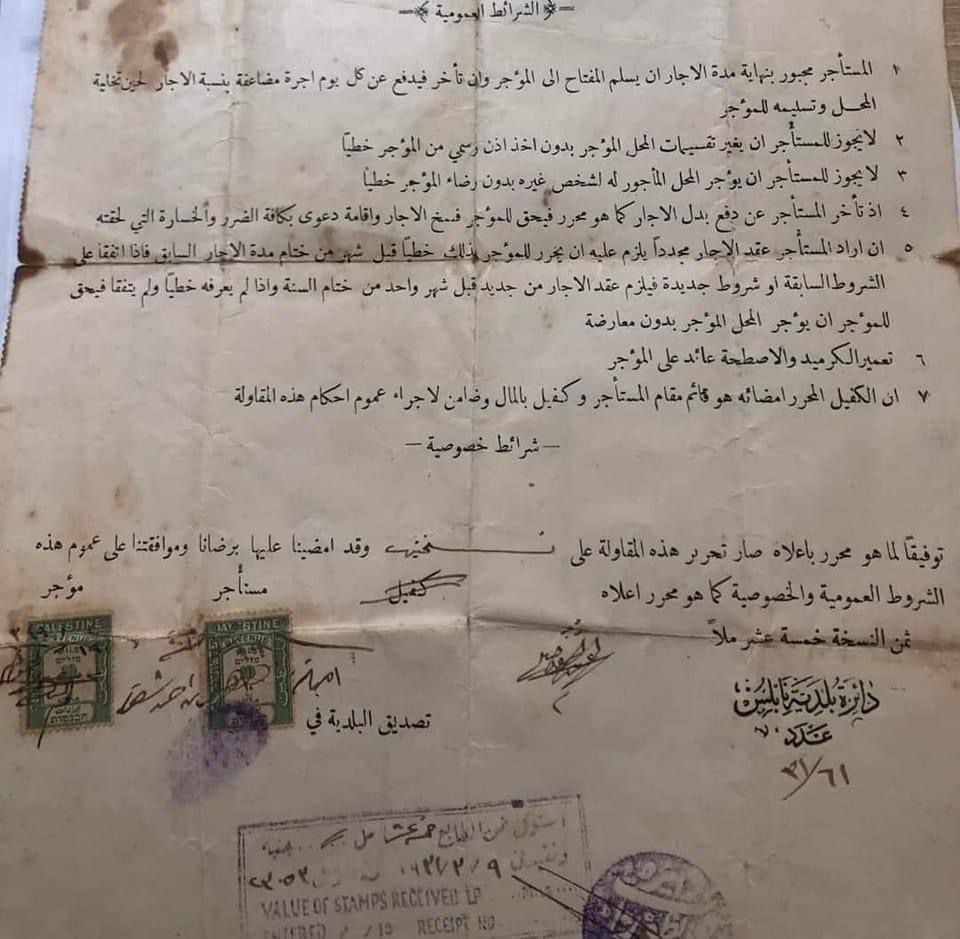 الشرائط العمومية
١ المستأجر مجبور بنهاية مدة الاجار ان يسلم المفتاح الى المؤجر وان تأخر فيدفع عن كل يوم اجرة مضاعفة بنسبة الاجار لحين تخلية
المحل وتسليمه للمؤجر
٢ لايجوز للمستأجر ان يغير تقسيمات المحل المؤجر بدون اخذ اذن رسمي من المؤجر خطياً
٣ لايجوز للمستأجر ان يؤجر المحل المأجور له لشخص غيره بدون رضاء المؤجر خطياً
٤ اذ تأخر المستأجر عن دفع بدل الاجار كما هو محرر فيحق للمؤجر فسخ الاجار واقامة دعوى بكافة الضرر والخسارة التي لحقته
٥ ان اراد المستأجر عقد الاجار مجدداً يلزم عليه ان يحرر للمؤجر بذلك خطياً قبل شهر من ختام مدة الاجار السابق فاذا اتفقا على
الشروط السابقة او شروط جديدة فيلزم عقد الاجار من جديد قبل شهر واحد من ختام السنة واذا لم يعرفه خطياً ولم يتفقا فيحق
للمؤجر ان يؤجر المحل المؤجر بدون معارضة
٦ تعمير الكرميد والاصطحة عائد على المؤجر
٧ ان الكفيل المحرر امضائه هو قائم مقام المستأجر وكفيل بالمال وضامن لاجراء عموم احكام هذه المقاولة
— شرائط خصوصية —
توفيقاً لما هو محرر باعلاه صار تحرير هذه المقاولة على نسختين وقد امضينا عليها برضانا وموافقتنا على عموم هذه
الشروط العمومية والخصوصية كما هو محرر اعلاه كفيل مستأجر مؤجر
ثمن النسخة خمسة عشر ملاً
PALESTINE
PALESTINE
دائرة بلدية نابلس
عدد
٣١/٦١
تصديق البلدية في
VALUE OF STAMPS RECEIVED LP
ENTERED / /19 RECEIPT NO